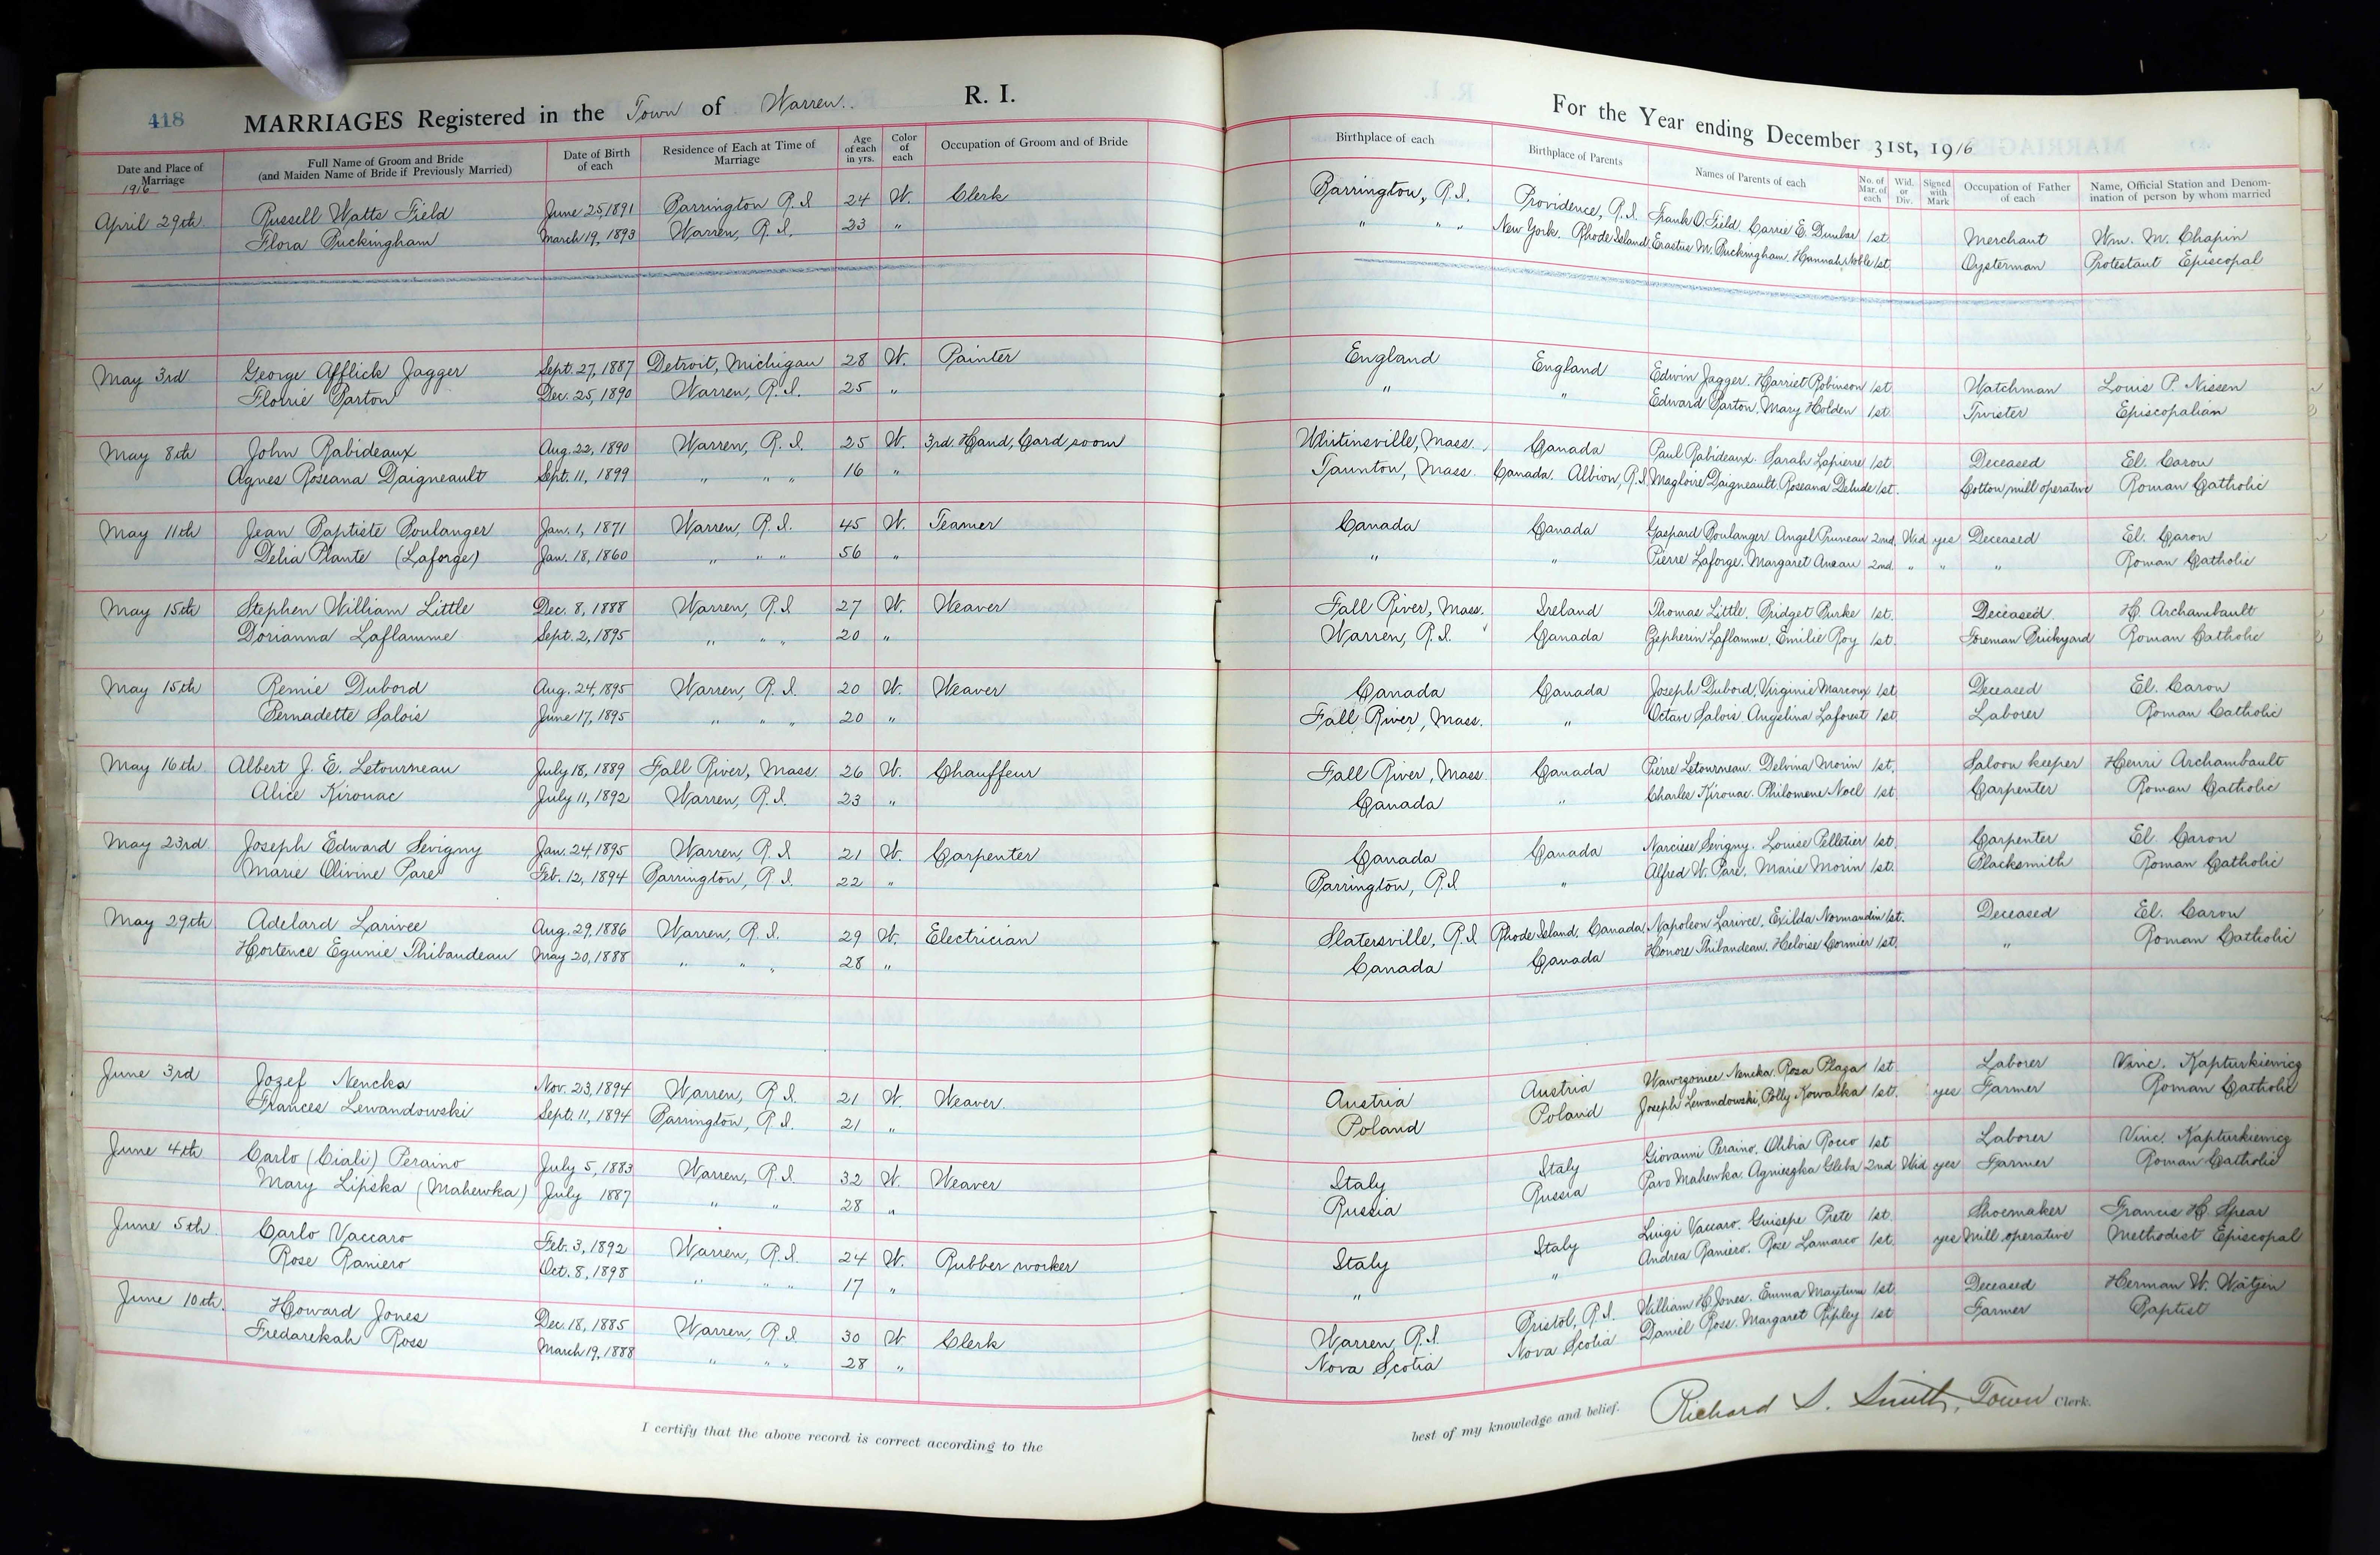 418 MARRIAGES Registered in the Town of Warren. R. I. For the Year ending December 31st, 1916
Date and Place of Marriage | Full Name of Groom and Bride (and Maiden Name of Bride if Previously Married) | Date of Birth of each | Residence of Each at Time of Marriage | Age of each in yrs. | Color of each | Occupation of Groom and of Bride | Birthplace of each | Birthplace of Parents | Names of Parents of each | No. of Mar. of each | Wid. or Div. | Signed with Mark | Occupation of Father of each | Name, Official Station and Denomination of person by whom married
1916
April 29th Russell Watts Field June 25, 1891 Barrington R.I 24 W. Clerk Barrington, R.I. Providence, R.I. Frank O. Field. Carrie E. Dunbar 1st Merchant Wm. M. Chapin
Flora Buckingham March 19, 1893 Warren, R.I. 23 " " " " New York. Rhode Island Erastus M. Buckingham. Hannah Noble 1st Oysterman Protestant Episcopal
May 3rd George Afflick Jagger Sept. 27, 1887 Detroit, Michigan 28 W. Painter England England Edwin Jagger. Harriet Robinson 1st Watchman Louis P. Nissen
Florrie Barton Dec. 25, 1890 Warren, R.I. 25 " " " Edward Barton. Mary Holden 1st Twister Episcopalian
May 8th John Rabideaux Aug. 22, 1890 Warren, R.I. 25 W. 3rd. Hand, Card room Whitinsville, Mass. Canada Paul Rabideaux. Sarah Lapierre 1st. Deceased El. Caron
Agnes Roseana Daigneault Sept. 11, 1899 " " " 16 " Taunton, Mass. Canada. Albion, R.I. Magloire Daigneault. Roseana Delude 1st. Cotton mill operative Roman Catholic
May 11th Jean Baptiste Boulanger Jan. 1, 1871 Warren, R.I. 45 W. Teamer Canada Canada Gaspard Boulanger. Angel Pruneau 2nd. Wid yes Deceased El. Caron
Delia Plante (Laforge) Jan. 18, 1860 " " " 56 " " " Pierre Laforge. Margaret 2nd. " " " Roman Catholic
May 15th Stephen William Little Dec. 8, 1888 Warren, R.I 27 W. Weaver Fall River, Mass. Ireland Thomas Little. Bridget Burke 1st. Deceased H. Archambault
Dorianna Laflamme Sept. 2, 1895 " " " 20 " Warren, R.I. Canada Zepherin Laflamme. Emilie Roy 1st. Foreman Brickyard Roman Catholic
May 15th Remie Dubord Aug. 24, 1895 Warren, R.I. 20 W. Weaver Canada Canada Joseph Dubord, Virginie Marcoux 1st Deceased El. Caron
Bernadette Salois June 17, 1895 " " " 20 " Fall River, Mass. " Octave Salois. Angelina Laforest 1st Laborer Roman Catholic
May 16th Albert J. E. Letourneau July 18, 1889 Fall River, Mass. 26 W. Chauffeur Fall River, Mass. Canada Pierre Letourneau. Delvina Morin 1st. Saloon keeper Henri Archambault
Alice Kirouac July 11, 1892 Warren, R.I. 23 " Canada " Charles Kirouac. Philomene Noel 1st. Carpenter Roman Catholic
May 23rd Joseph Edward Sevigny Jan. 24, 1895 Warren, R.I 21 W. Carpenter Canada Canada Narcisse Sevigny. Louise Pelletier 1st. Carpenter El. Caron
Marie Olivine Pare Feb. 12, 1894 Barrington, R.I. 22 " Barrington, R.I " Alfred W. Pare. Marie Morin 1st. Blacksmith Roman Catholic
May 29th Adelard Larivee Aug. 29, 1886 Warren, R.I. 29 W. Electrician Slatersville, R.I Rhode Island. Canada Napoleon Larivee. Exilda Normandin 1st. Deceased El. Caron
Hortence Egunie Thibaudeau May 20, 1888 " " " 28 " Canada Canada Honore Thibaudeau. Heloise Cormier 1st. " Roman Catholic
June 3rd Jozef Nencka Nov. 23, 1894 Warren, R.I. 21 W. Weaver. Austria Austria Wawrzoniec Nencka. Rosa Plaga 1st Laborer Vinc. Kapturkiewicz
Frances Lewandowski Sept. 11, 1894 Barrington, R.I. 21 " Poland Poland Joseph Lewandowski, Polly Kowalka 1st. yes Farmer Roman Catholic
June 4th Carlo (Ciali) Peraino July 5, 1883 Warren, R.I 32 W. Weaver Italy Italy Giovanni Peraino. Olibia Rocco 1st Laborer Vinc. Kapturkiewicz
Mary Lipska (Mahewka) July 1887 " " 28 " Russia Russia Pavo Mahewka. Agnieszka Gleba 2nd Wid yes Farmer Roman Catholic
June 5th Carlo Vaccaro Feb. 3, 1892 Warren, R.I 24 W. Rubber worker Italy Italy Luigi Vaccaro. Guisepe Prete 1st. Shoemaker Francis H. Spear
Rose Raniero Oct. 8, 1898 " " " 17 " " " Andrea Raniero. Rose Lamarco 1st. yes Mill operative Methodist Episcopal
June 10th. Howard Jones Dec. 18, 1885 Warren, R.I 30 W Clerk Warren, R.I. Bristol, R.I. William H Jones. Emma Maytum 1st Deceased Herman W. Watjen
Fredarekah Rose March 19, 1888 " " " 28 " Nova Scotia Nova Scotia Daniel Rose. Margaret Ripley 1st Farmer Baptist
I certify that the above record is correct according to the best of my knowledge and belief. Richard S. Smith, Town Clerk.